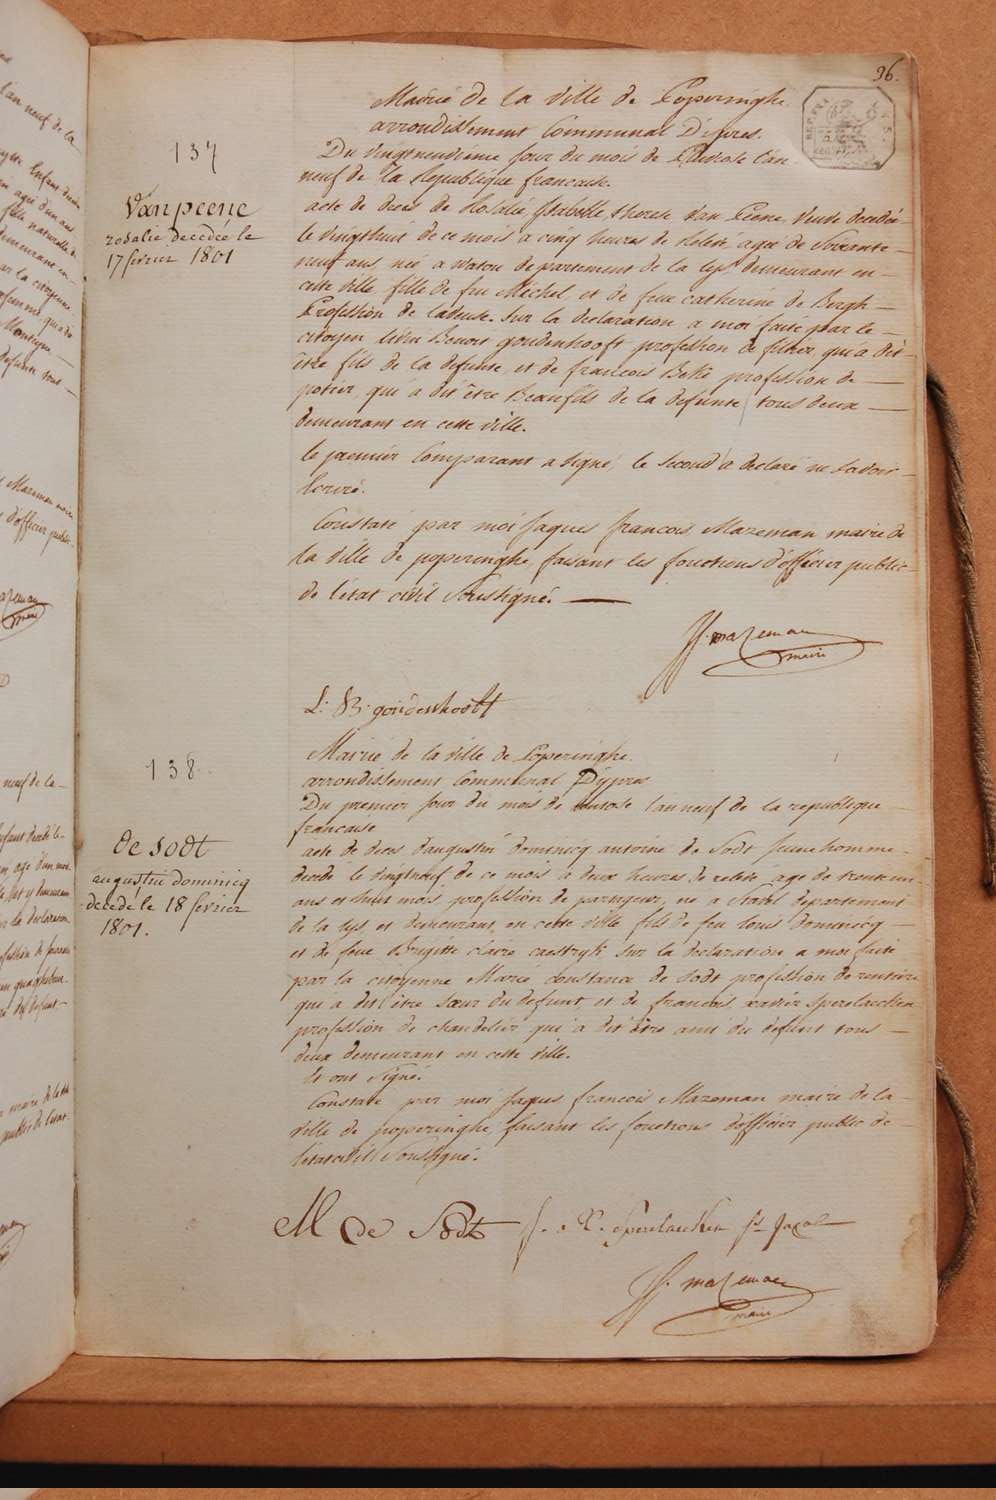 96.
Mairie de la ville de Poperinghe
arrondissement Communal D'ipres.
137
Du vingtneuvieme jour du mois de Pluviose l'an
neuf de la Republique francaise.
Vanpeene
rosalie decedée le
17 fevrier 1801
acte de deces de Rosalie Isabelle therese Van Peene, veuve decedée
le vingthuit de ce mois a cinq heures de relevé, agée de soixante
neuf ans, née a watou departement de la lys demeurant en
cette ville, fille de feu Michel et de feue catherine de Bergh
Profession de
sur la declaration a moi faite par le
citoyen livin Benoit goudenhooft profession de
qui a dit
être fils de la defunte, et de francois Beke profession de
potier, qui a dit être Beaufils de la defunte, tous deux
demeurant en cette ville.
le premier Comparant a signé, le second a declaré ne savoir
Ecrire.
Constaté par moi Jaques francois Mazeman maire de
la ville de poperinghe, faisant les fonctions d'officier public
de l'état civil soussigné.
JJ. mazeman
maire
L. B. goudenhooft
Mairie de la ville de Poperinghe.
138
arrondissement Communal D'ypres
Du premier jour du mois de ventose l'an neuf de la republique
francaise
De sodt
augustin dominicq
decedé le 18 fevrier
1801.
acte de deces d'augustin dominicq antoine de Sodt Jeune homme
decedé le vingtneuf de ce mois a deux heures de relevé, agé de trente un
ans et huit mois, profession de
né a Stavel departement
de la lys et demeurant en cette ville fils de feu louis dominicq
et de feue Brigitte claire caestryck sur la declaration a moi faite
par la citoyenne Marie constance de Sodt profession de rentiere
qui a dit être sœur du defunt, et de francois xavier Sperelaecken
profession de chandelier qui a dit être ami du defunt tous
deux demeurant en cette ville.
Et ont signé.
Constaté par moi Jaques francois Mazeman maire de la
ville de poperinghe, faisant les fonctions d'officier public de
l'état civil soussigné.
M C de Sodt f. X. Sperelaecken
JJ. mazeman
maire